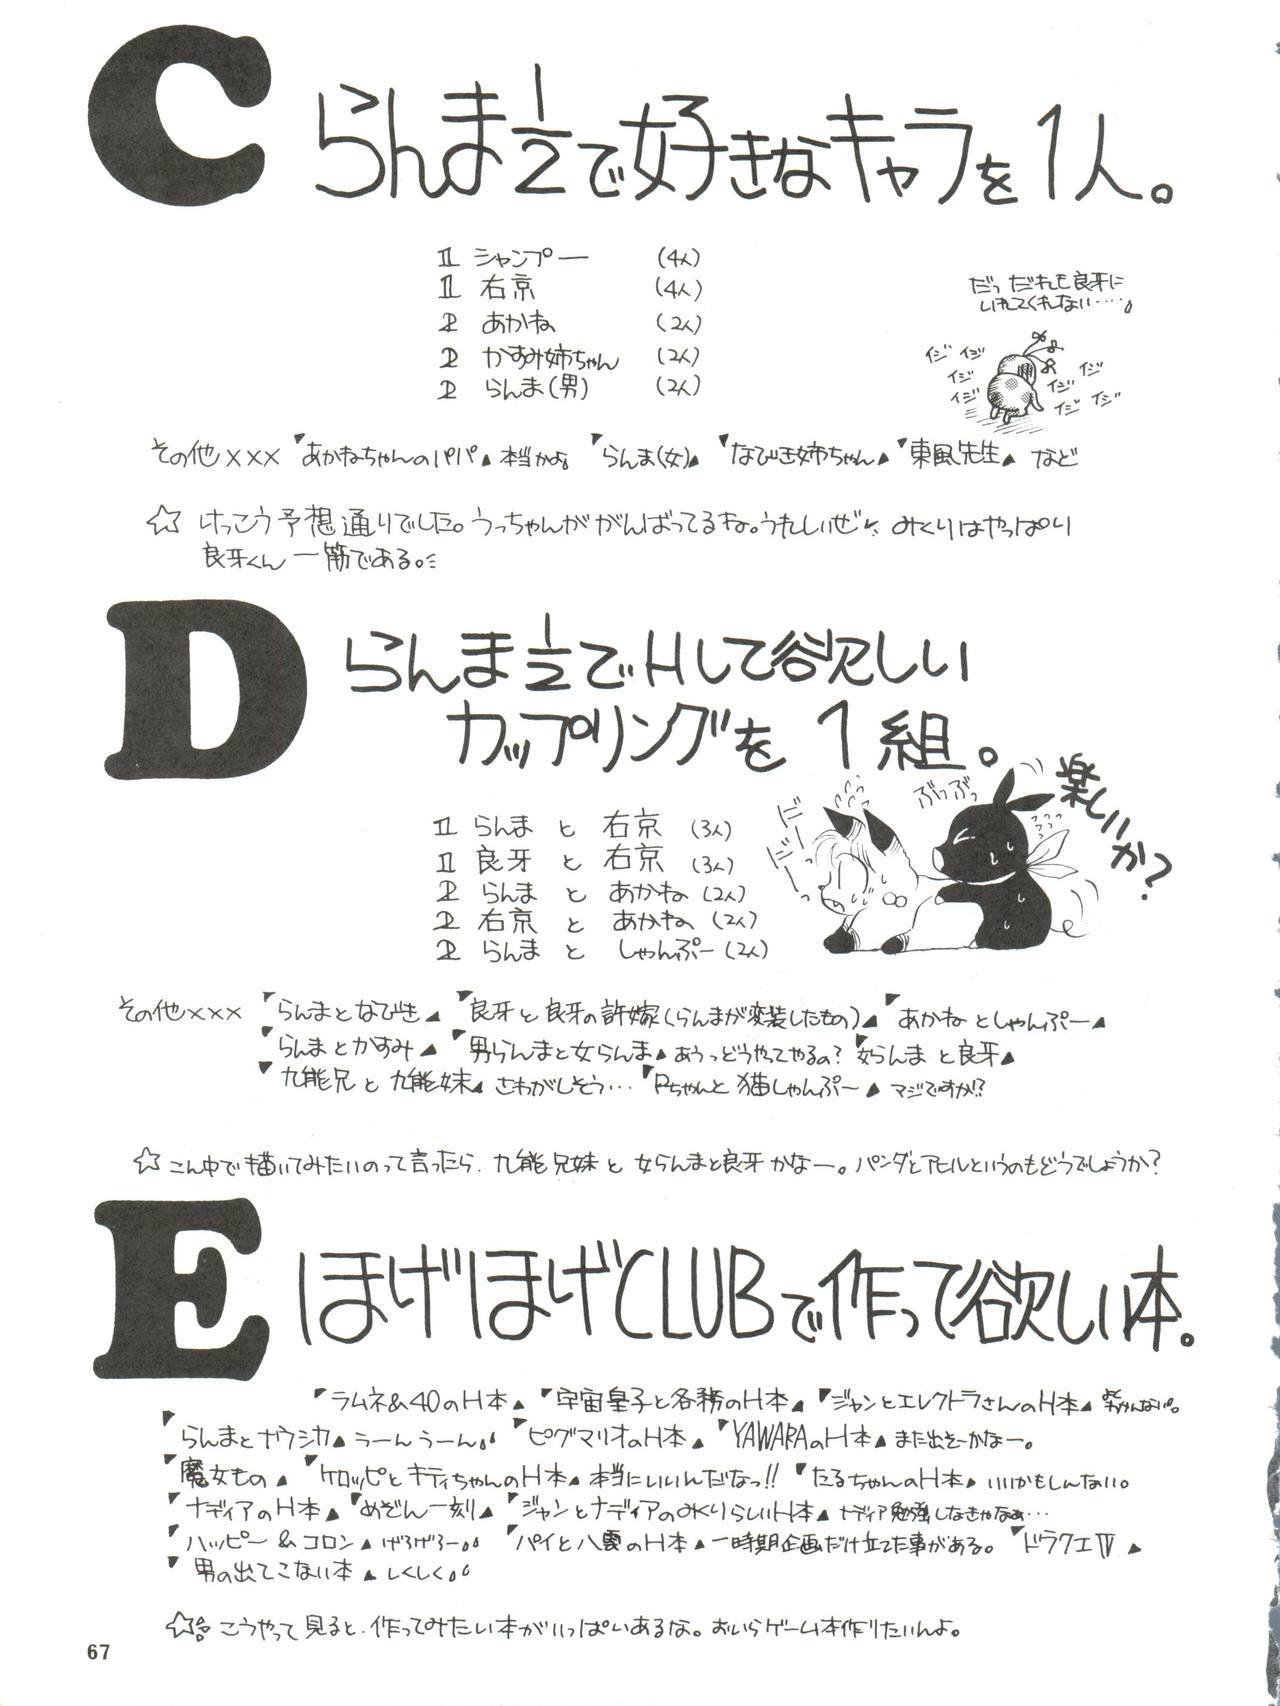 C らんま1/2で好きなキャラを1人。
1 シャンプー (4人)
1 右京 (4人)
2 あかね (2人)
2 かすみ姉ちゃん (2人)
2 らんま(男) (2人)
だっ だれも良牙に
いれてくれない‥‥
イジ イジ
イジ
イジ
イジ
イジ
イジ イジ
その他××× 「あかねちゃんのパパ」本当かよ 「らんま(女)」 「なびき姉ちゃん」 「東風先生」 など
☆ けっこう予想通りでした。うっちゃんががんばってるね。うれしいぜ みくりはやっぱり
良牙くん一筋である。
D らんま1/2でHして欲しい
カップリングを1組。
1 らんま と 右京 (3人)
1 良牙 と 右京 (3人)
2 らんま と あかね (2人)
2 右京 と あかね (2人)
2 らんま と しゃんぷー (2人)
ぶっぶっ
楽しいか?
その他××× 「らんまとなびき」 「良牙と良牙の許嫁(らんまが変装したもの)」 「あかねとしゃんぷー」
「らんまとかすみ」 「男らんまと女らんま」あうっどうやってやるの? 「女らんまと良牙」
「九能兄と九能妹」さわがしそう… 「Pちゃんと猫しゃんぷー」マジですか!?
☆ こん中で描いてみたいのって言ったら、九能兄妹と女らんまと良牙かなー。パンダとアヒルというのもどうでしょうか?
E ほげほげCLUBで作って欲しい本。
「ラムネ&40のH本」 「宇宙皇子と各務のH本」 「ジャンとエレクトラさんのH本」
「らんまとナウシカ」うーんうーん 「ピグマリオのH本」 「YAWARAのH本」また出そーかなー。
「魔女もの」 「ケロッピとキティちゃんのH本」本当にいいんだなっ!! 「たるちゃんのH本」いいかもしんない。
「ナディアのH本」 「めぞん一刻」 「ジャンとナディアのみくりらしいH本」ナディア勉強しなきゃなぁ…
「ハッピー&コロン」げろげろー 「パイと八雲のH本」一時期企画だけ立てた事がある。 「ドラクエIV」
「男の出てこない本」しくしく
☆ こうやって見ると、作ってみたい本がいっぱいあるな。おいらゲーム本作りたいんよ。
67